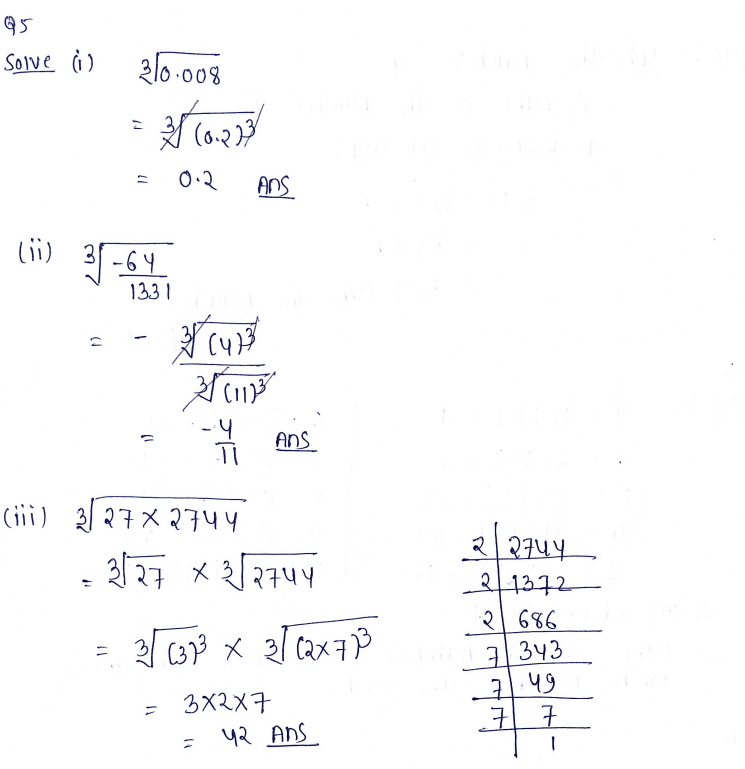 Q5
Solve (i) ∛0.008
= ∛(0.2)³
= 0.2 Ans
(ii) ∛-64/1331
= - ∛(4)³/∛(11)³
= -4/11 Ans
(iii) ∛27 × 2744
= ∛27 × ∛2744
= ∛(3)³ × ∛(2×7)³
= 3×2×7
= 42 Ans
2 | 2744
2 | 1372
2 | 686
7 | 343
7 | 49
7 | 7
| 1